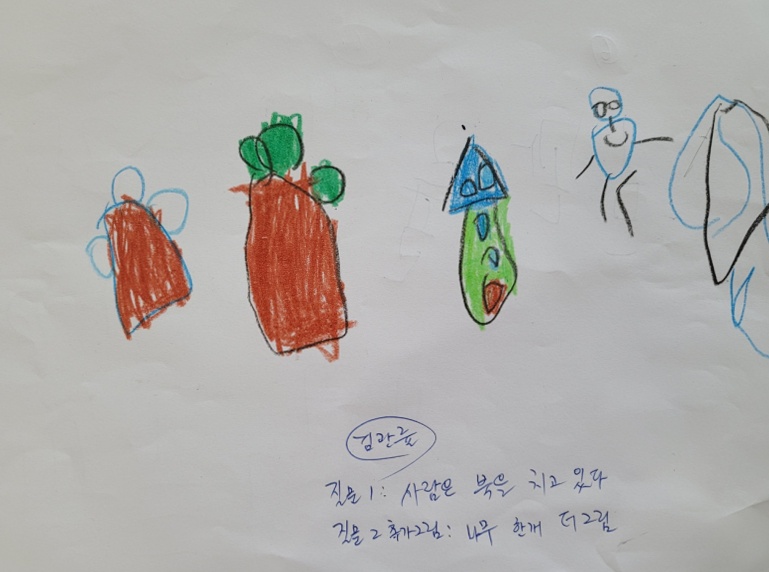 질문1: 사람은 북을 치고 있다
질문2 추가그림: 나무 한개 더 그림